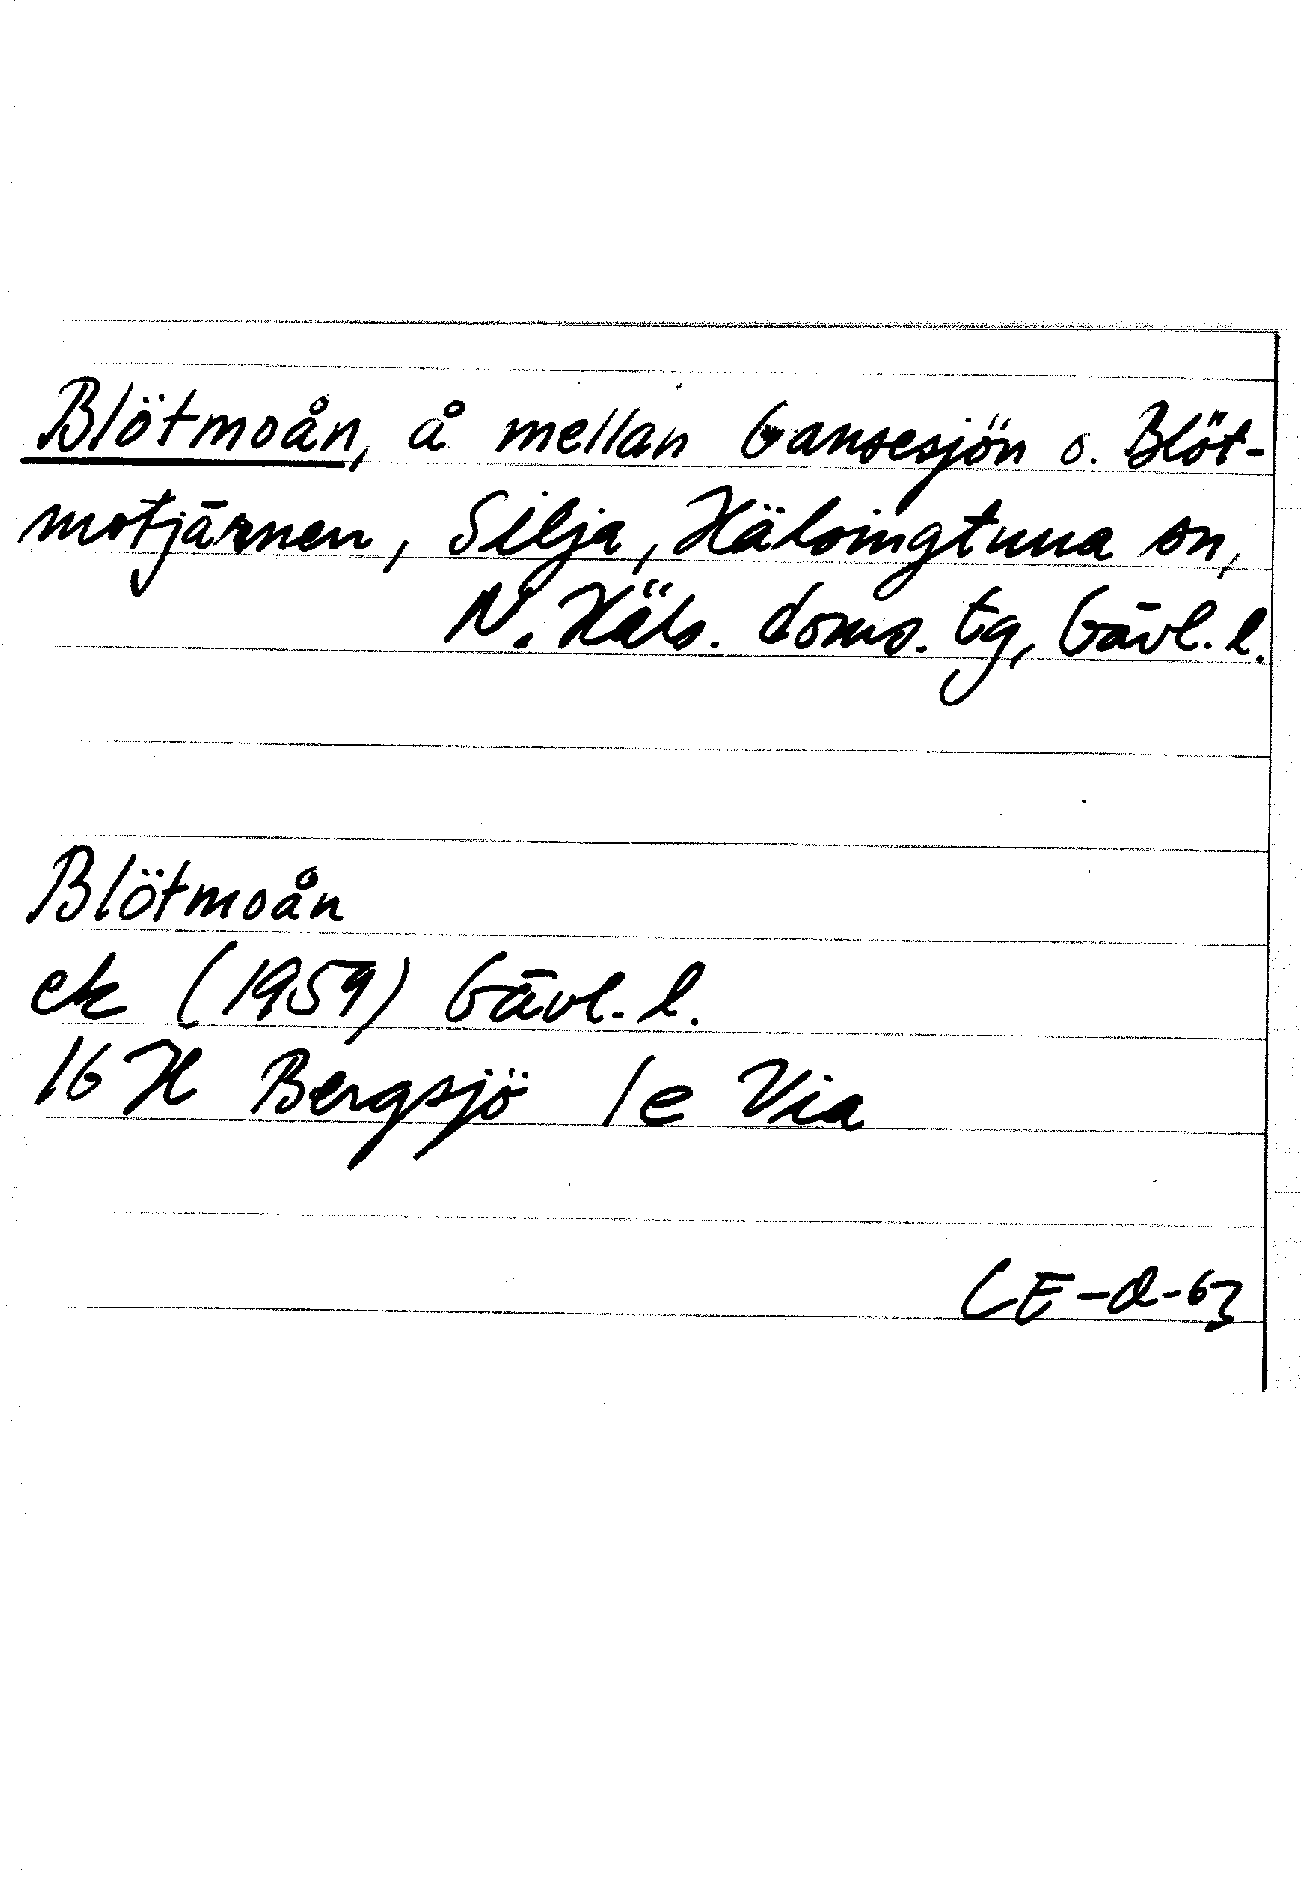 Blötmoån, å mellan Gansesjön o. Blöt-
motjärnen, Silja, Hälsingtuna sn,
N. Häls. doms. tg, Gävl. l.
Blötmoån
ek (1959) Gävl. l.
16 H Bergsjö 1e Via
CE-Q-63